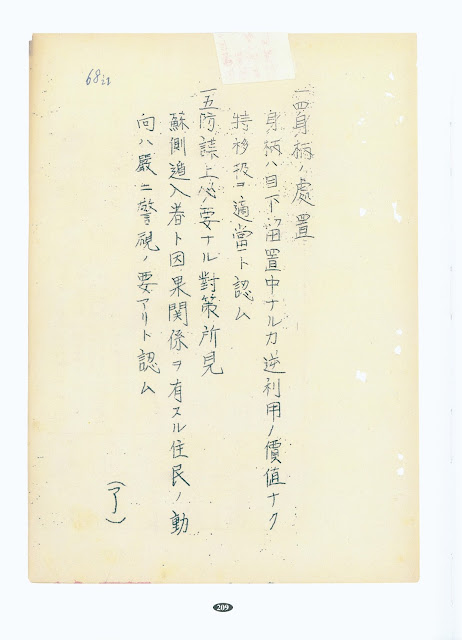 68
一四身柄ノ處置
身柄ハ目下留置中ナルカ逆利用ノ價値ナク
特移扱ヲ適當ト認ム
一五防諜上必要ナル對策所見
蘇側追入者ト因果関係ヲ有スル住民ノ動
向ハ嚴ニ警視ノ要アリト認ム
(了)
209